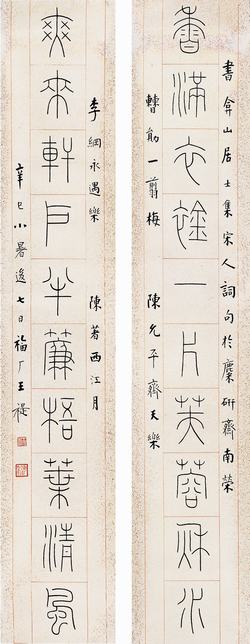 書弇山居士集宋人詞句於麋研齋南榮
香滿衣一片芙蓉秋水
曹勛一翦梅 陳允平齊天樂
李綱永遇樂 陳著西江月
爽來軒戶半簾梧葉清風
辛巳小暑後七日福厂王禔